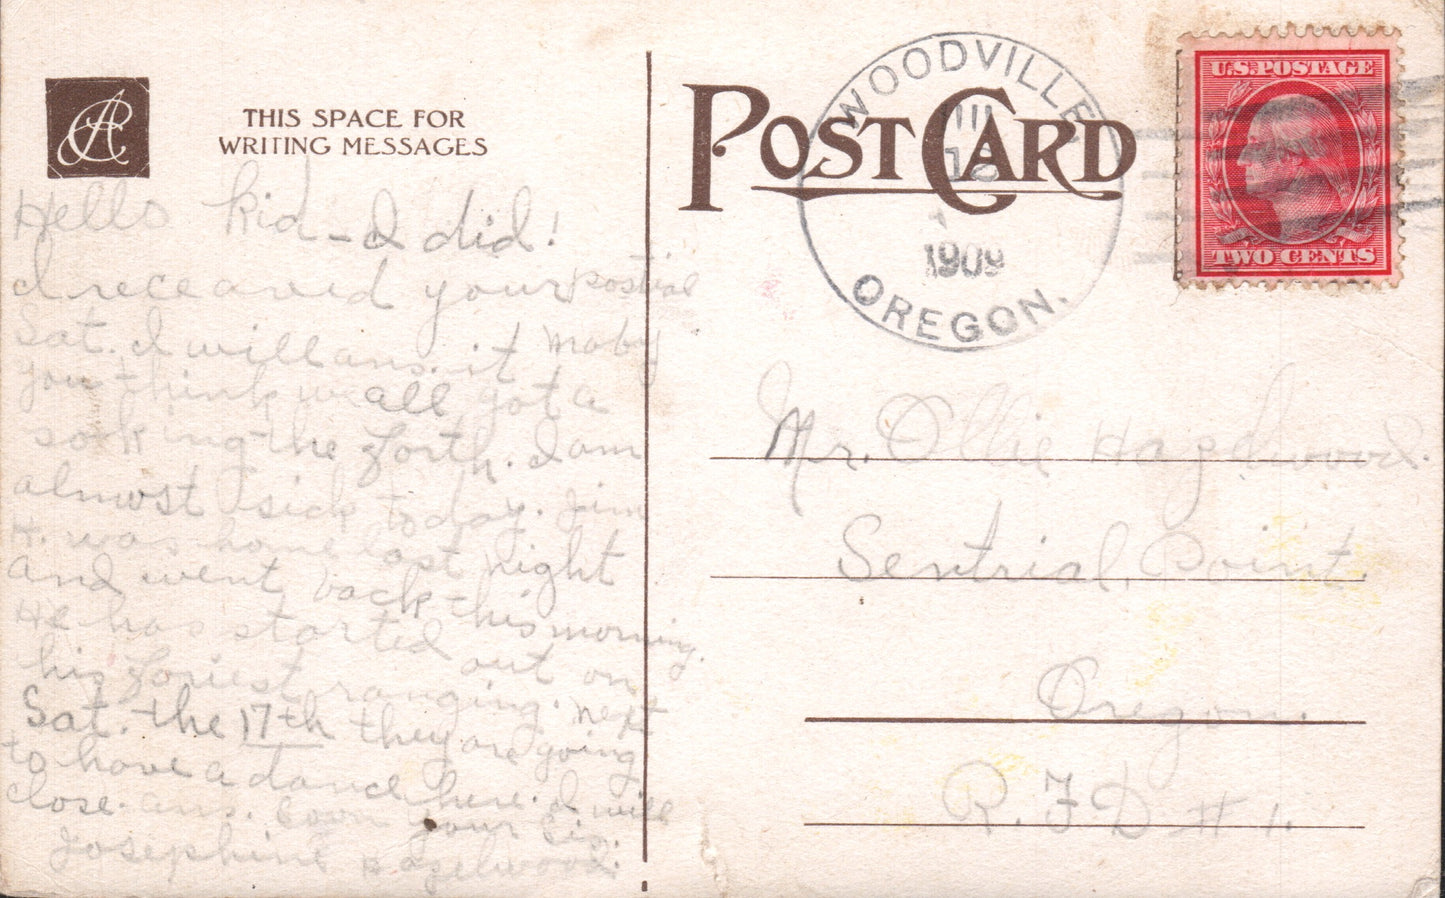 AC
THIS SPACE FOR
WRITING MESSAGES
Hello kid - I did!
I receaved your postial
Sat. I will ans. it maby
you think we all got a
sooking the forth. I am
almost sick today. Jim
H. was home last night
and went back this morning.
He has started out on
his foriest ranging. next
Sat. the 17th they are going
to have a dance here. I will
close. ans. soon your Sis.
Josephine Hazelwood.
POST CARD
WOODVILLE
1909
OREGON.
U.S. POSTAGE
TWO CENTS
Mr. Ollie Hazelwood.
Sentrial Point.
Oregon.
R. F D # 1.